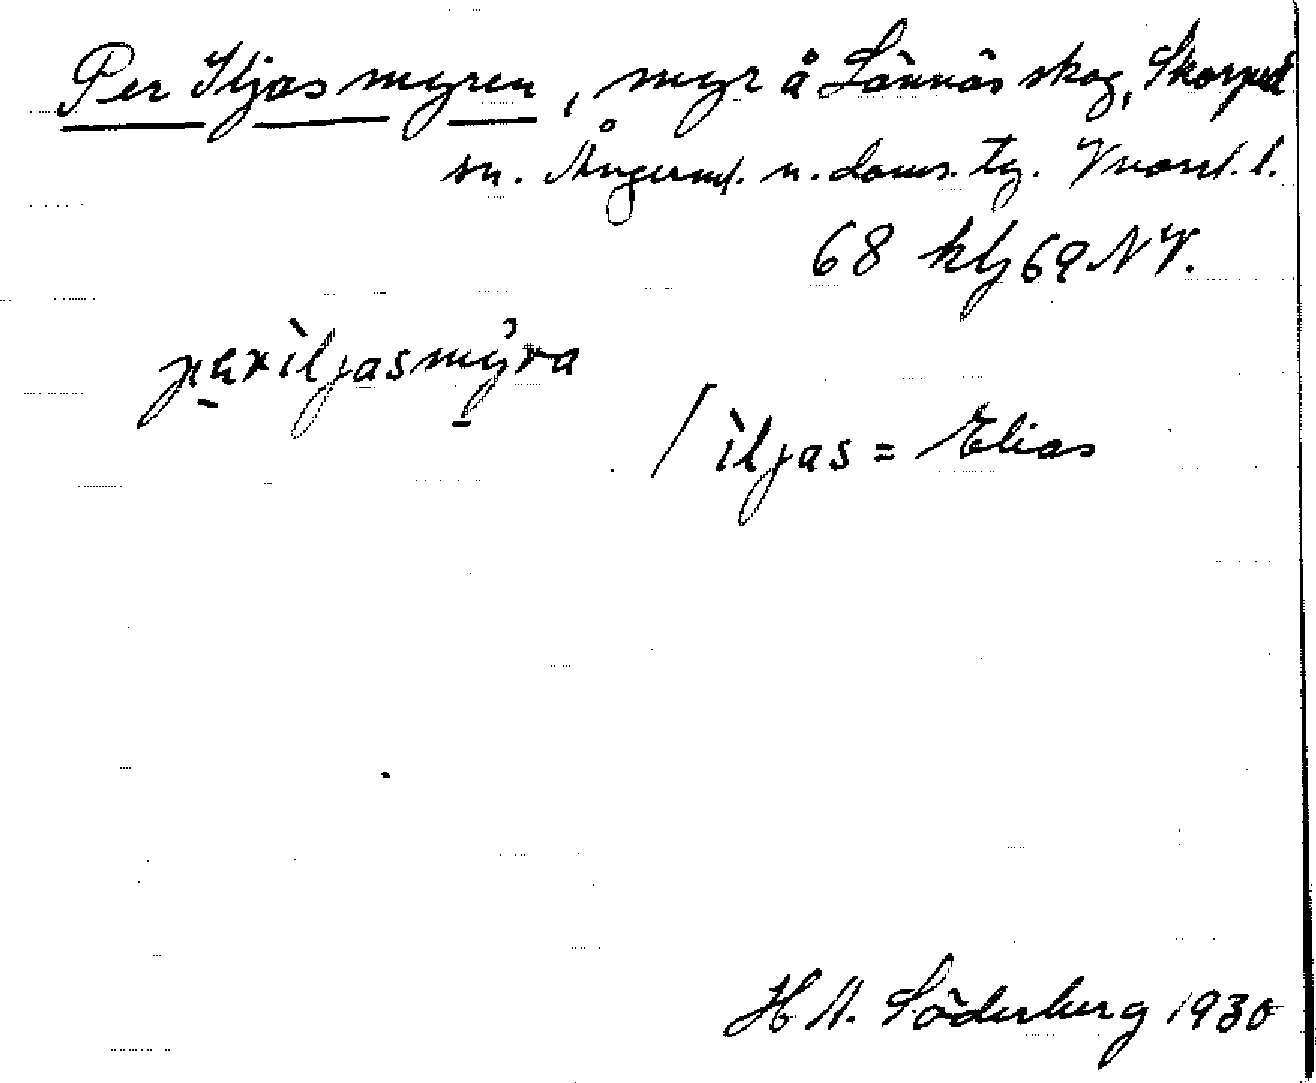 Per Iljas myren, myr å Lännäs skog, Skorped
sn. Ångerml. n. doms. tg. Vnorrl. l.
68 klj 69 NV.
pæriljasmýra
/ ìljas = Elias
H N. Söderberg 1930